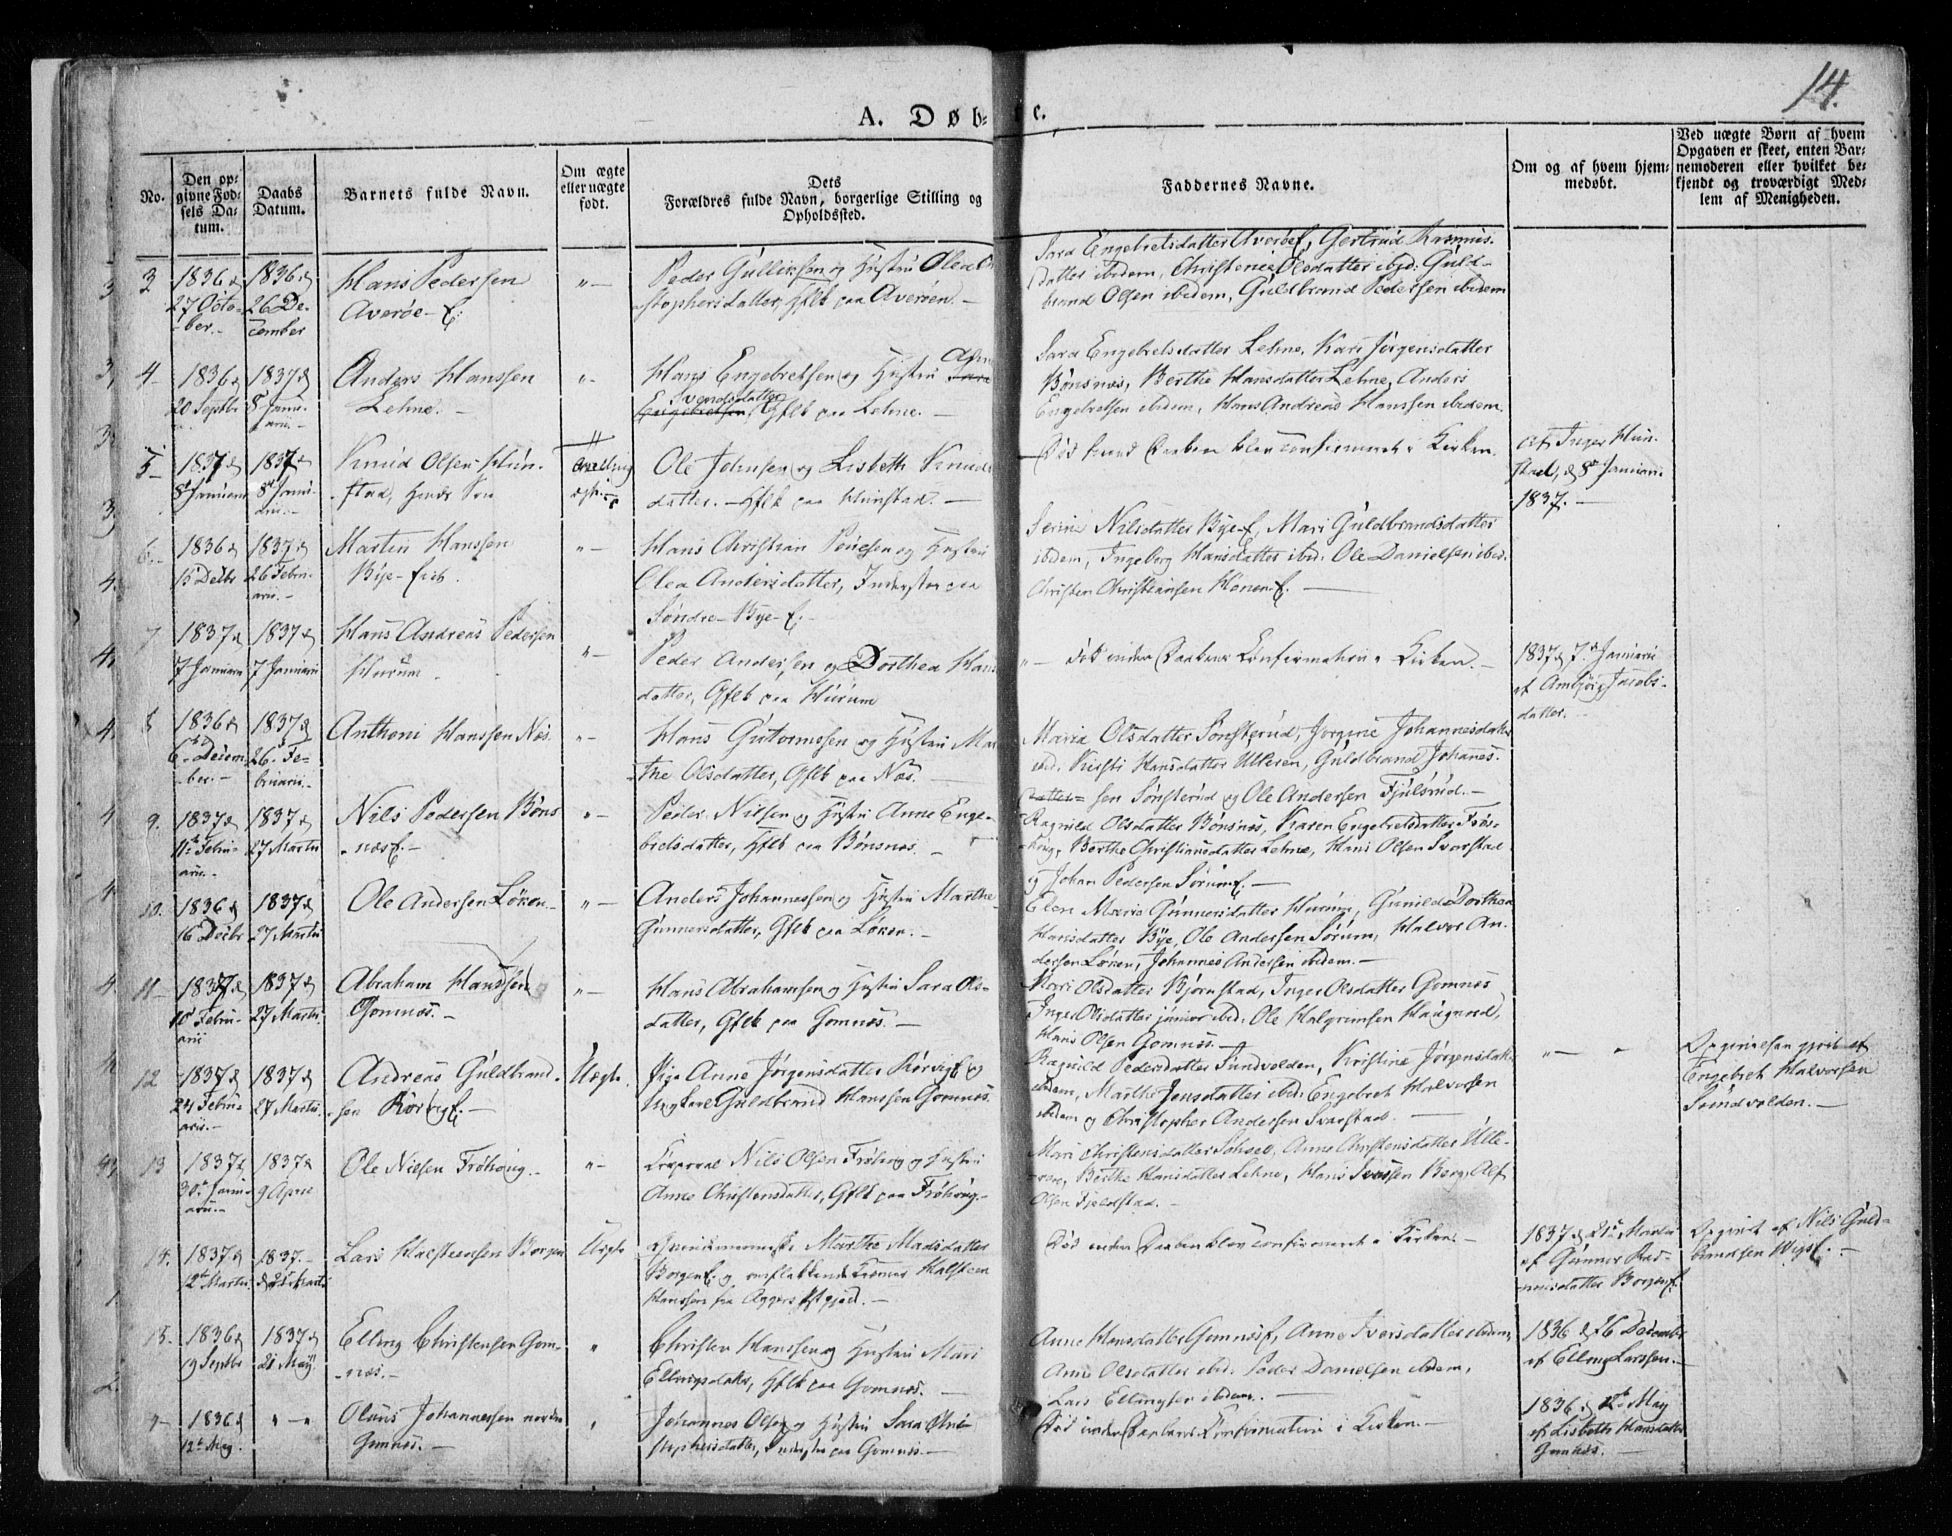 14.
A. Døb- e.
No.
Den op-
givne Fød-
sels Da-
tum.
Daabs
Datum.
Barnets fulde Navn.
Om ægte
eller uægte
født.
Dets
Forældres fulde Navn, borgerlige Stilling og
Opholdssted.
Faddernes Navne.
Om og af hvem hjem-
medøbt.
Ved uægte Børn af hvem
Opgaven er skeet, enten Bar-
nemoderen eller hvilket be-
kjendt og troværdigt Med-
lem af Menigheden.
3
1836 d
27 Octo-
ber.-
1836 d
26 De-
cember
Hans Pedersen
Averøe-E.
Peder Gulliksen og Hustru Olea
stophersdatter, Gflk paa Averøen.-
Sara Engebretsdatter Averøe, Gertrud Rasmus-
datter ibidem, Christenia Olsdatter ibid: Guld-
brand Olsen ibidem, Guldbrand Pedersen ibidem
4-
1836 d
20 Septbr
1837 d
8 Janu-
arii.-
Anders Hanssen
Lehne.-
Hans Engebretsen og Hustru
Svendsdatter
Gflk paa Lehne.-
Sara Engebretsdatter Lehne, Kari Jørgensdatter
Bønsnæs, Berthe Hansdatter Lehne, Anders
Engebretsen ibidem, Hans Andreas Hanssen ibidem.
5-
1837 d
8 Januarii
1837 d
8 Janu-
arii.-
Knud Olsen Hun-
stad,
Ole Johnsen og Lisbeth Knuds
datter.- Gflk paa Hunstad.-
Død Daaben blev confirmeret i Kirken.
af Inger Hun-
stad, d 8 Januarii
1837.-
6.-
1836 d
15 Decbr
1837 d
26 Febru-
arii.-
Martin Hanssen
Bye-
Hans Christian og Hustru
Olea Andersdatter, Inderster paa
Søndre-Bye-E.
Nilsdatter Bye-E, Mari Guldbrandsdatter
ibidem, Ingeborg Hansdatter ibid: Ole Danielsen ibid.
Christen Christiansen Honen E.-
7
1837 d
7 Januarii
1837 d
7 Januarii
Hans Andreas Pedersen
Hurum.
Peder Andersen og Dorthea Hans
datter, Gflk paa Hurum
Død under Daabens Confirmation i Kirken.-
1837 d 7 Januarii
af Ambjør Jacobs-
datter.-
8
1836 d
6 Decem-
ber.-
1837 d
26 Fe-
bruarii.-
Anthoni Hanssen Næs.
Hans Guttormssen og Hustru Mar
the Olsdatter, Gflk paa Næs.
Maria Olsdatter Sønsterud, Jorgine Johannesdatter
ibid. Kirsti Hansdatter Ulleren, Guldbrand Johannes-
sen Sønsterud og Ole Andersen Fjulsrud.-
9.
1837 d
11 Febru-
arii.-
1837 d
27 Martii
Nils Pedersen Bøns
næs E.-
Peder Nilsen og Hustru Anne Enge-
bretsdatter, Gflk paa Bønsnæs.-
Ragnild Olsdatter Bønsnæs, Karen Engebretsdatter Frøe-
houg, Berthe Christiansdatter Lehne, Hans Olsen Svarstad
og Johan Pedersen Sørum E.-
10.
1836 d
16 Decbr
1837 d
27 Martii
Ole Andersen Løken.
Anders Johannessen og Hustru Marthe
Gunnersdatter, Gflk paa Løken.-
Elen Marie Gunnersdatter Hurum, Gunild Dorthea
Hansdatter Bye, Ole Andersen Sørum, Halvor An-
dersen Løken, Johannes Andersen ibidem.-
11-
1837 d
10 Febru-
arii
1837 d
27 Martii.
Abraham Hanssen
Gomnæs.-
Hans Abrahamsen og Hustru Sara Ols-
datter, Gflk paa Gomnæs.-
Mari Olsdatter Bjørnstad, Inger Olsdatter Gomnæs
Inger Olsdatter junior ibid: Ole Halgrimsen Haugerud,
Hans Olsen Gomnæs.-
12
1837 d
24 Febru-
arii.-
1837 d
27 Martii.
Andreas Guldbrand-
sen Rørvig E.-
Uægte.
Pige Anne Jørgensdatter Rørvig E og
Ungkarl Guldbrand Hanssen Gomnæs.
Ragnild Pedersdatter Sundvolden, Kristine Jørgensdatter
ibidem, Marthe Jensdatter ibid: Engebret Halvorsen
ibidem og Christopher Andersen Svarstad.-
Opgivelsen gjort af
Engebret Halvorsen
Sundvolden.-
13
1837 d
30 Janu-
arii.-
1837 d
9 April
Ole Nielsen Frøhoug.-
Corporal Nils Olsen Frøhoug og Hustru
Anne Christensdatter, Gflk paa Frøhoug.-
Mari Christensdatter, Anne Christensdatter Ulle-
ren, Berthe Hansdatter Lehne, Hans Berg, Alf
Olsen Fjeldstad.-
14.
1837 d
12 Martii.
1837.-
d 21 Martii
Lars Halsteensen Borgen
Uægte
Marthe Madsdatter
Borgen E. og omflakkende Halsteen
Hanssen fra Aggers Pgjæld.-
Død under Daaben blev confirmeret i Kirken.-
1837 d 21 Martii
af Gunnor Ras-
musdatter Borgen E.
Opgivet af Nils Guld-
brandsen E.-
15.
1836 d
19 Septbr
1837 d
21 Maij.
Elling Christensen Gom-
næs.-
Christen Hanssen og Hustru Mari
Ellingsdatter, Gflk paa Gomnæs.-
Anne Hansdatter Gomnæs, Anne Iversdatter ibidem,
Anne Olsdatter ibid: Peder Danielsen ibidem,
Lars Ellingsen ibidem.-
1836 d 26 December
af Elling Larssen.-
1836 d
12 Maj.
Olaus Johannessen nordre
Gomnæs.-
Johannes Olsen og Hustru Sara Chri
stophersdatter, Inderster paa Gomnæs.-
Død under Daabens Confirmation i Kirken.-
1836 d 12 Maj
af Lisbeth Hansdatter
Gomnæs.-